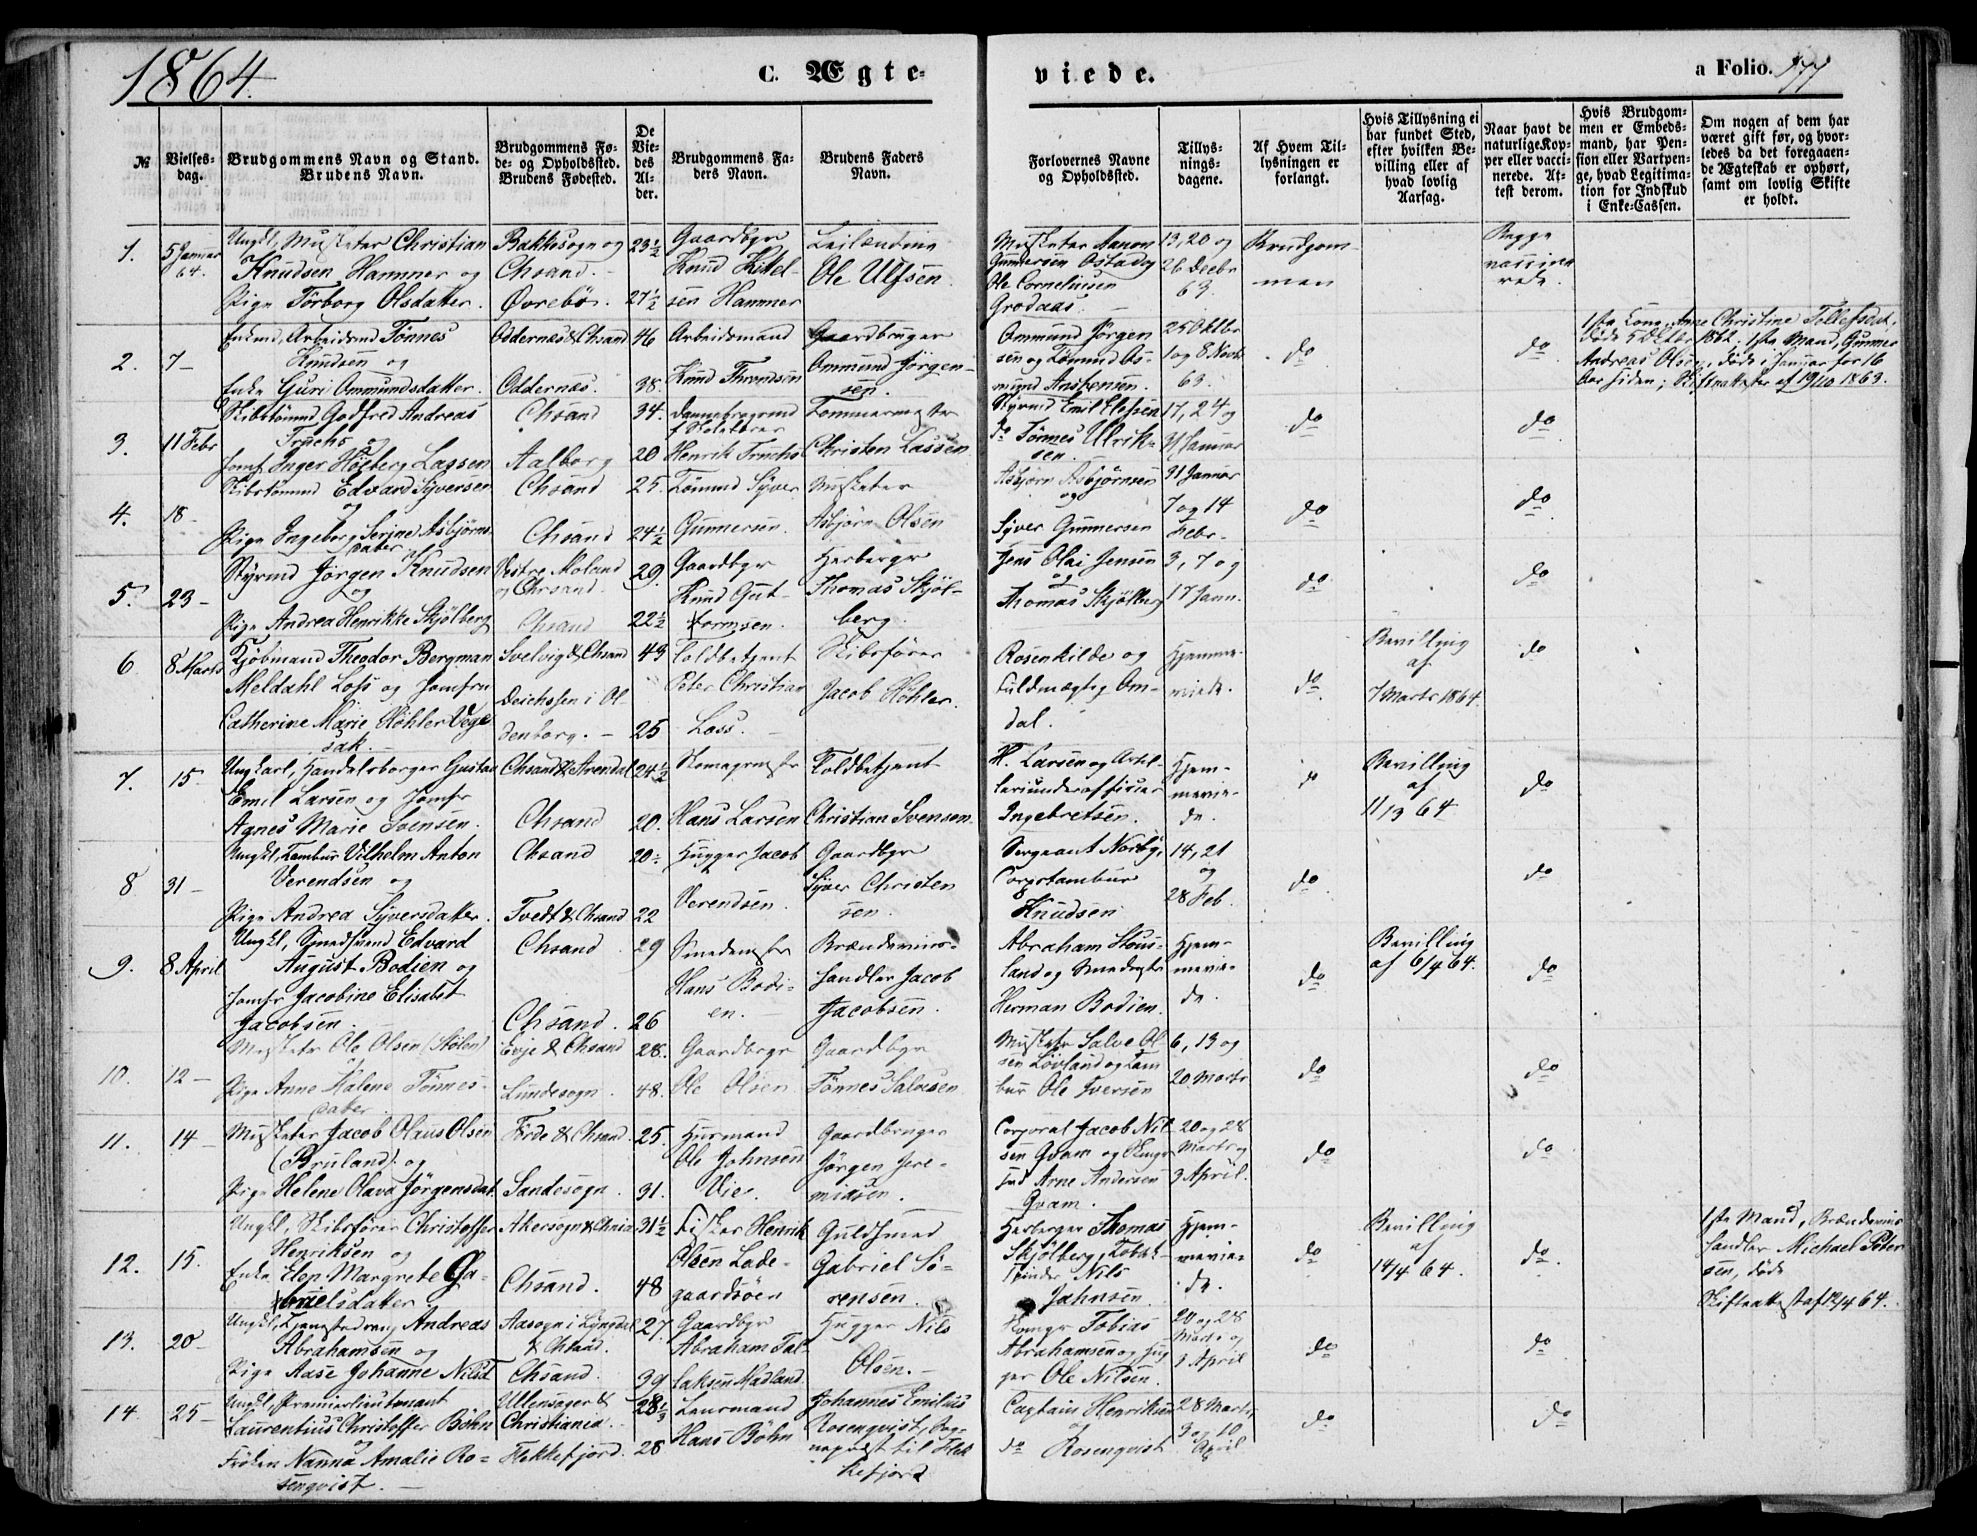 1864.
C. Ægte-
viede.
a Folio. 177
№
Vielses-
dag.
Brudgommens Navn og Stand.
Brudens Navn.
Brudgommens Fø-
de- og Opholdssted.
Brudens Fødested.
De
Vie-
des
Al-
der.
Brudgommens Fa-
ders Navn.
Brudens Faders
Navn.
Forlovernes Navne
og Opholdssted.
Tillys-
nings-
dagene.
Af Hvem Til-
lysningen er
forlangt.
Hvis Tillysning ei
har fundet Sted,
efter hvilken Be-
villing eller af
hvad lovlig
Aarsag.
Naar havt de
naturlige Kop-
per eller vacci-
nerede. At-
test derom.
Hvis Brudgom-
men er Embeds-
mand, har Pen-
sion eller Vartpen-
ge, hvad Legitima-
tion for Indskud
i Enke-Cassen.
Om nogen af dem har
været gift før, og hvor-
ledes da det foregaaen-
de Ægteskab er ophørt,
samt om lovlig Skifte
er holdt.
1.
5 Januar
64.
Ungkl, Musketer Christian
Knudsen Hammer og
Pige Torborg Olsdatter.
Bakkesogn og
Chsand.
Øvrebø.
23½
27½
Gaardbgr
Knud Kittel-
sen Hammer
Leilænding
Ole Ulfsen.
Musketer Aanon
Gunnersen Ostad og
Ole Corneliusen
Grodaas
13, 20 og
26 Decbr
63.
Brudgom-
men
Begge
vaccine
rede.
2.
7-
Enkmd, Arbeidsmd Tönnes
Knudsen og
Enke Guri Ommundsdatter.
Oddernes & Chsand
Oddernæs.
46
38.
Arbeidsmand
Knud Thromsen
Gaardbruger
Ommund Jörgen-
sen.
Ommund Jörgen
sen og Tömmd Os-
mund Anstensen.
25 Oktbr
1 og 8 Novb
63.
do
do
1ste Kone, Anne Christine Tollefsdat,
døde 5 Oktbr 1862. 1ste Mand, Gunner
Andreas Olsen, døde i Januar for 16
Aar siden; Skifteattester af 19/10 1863.
3.
11 Febr
Skibstømmd Godfred Andreas
Fruchs og
Jomf Inger Høiberg Lassen
Chsand
Aalborg
34.
20
Dannebrogsmd
Henrik Fruchs
Tømmermester
Christen Lassen
Styrmd Emil Ellefsen
do Tönnes Ulrik-
sen.
17, 24 og
31 Januar
do
do
4.
18-
Skibstømmd Edvard Syversen
og
Pige Ingeborg Serine Asbjörns-
datter
Chsand
Chsand
25.
24½
Tömmd Syver
Gunnersen.
Musketer
Asbjörn Olsen
Asbjörn Asbjörnsen
og
Syver Gunnersen
31 Januar
7 og 14
Febr.
do
do
5.
23-
Styrmd Jörgen Knudsen
og
Pige Andrea Henrikke Skjölberg
Vestre Moland
og Chrsand.
Chsand
29.
22½
Gaardbgr
Knud Gut-
tormsen.
Herbergr
Thomas Skjöl-
berg.
Jens Olai Jensen
og
Thomas Skjölberg
3, 7 og
17 Jann.
do
do
6
8 Marts
Kjöbmand Theodor Bergman
Meldahl Loss og Jomfru
Catherine Marie Köhler Vege
sak.
Svelvig & Chsand
Deichssen i Ol-
denborg.
43
25
Toldbetjent
Peter Christian
Loss.
Skibsfører
Jacob Köhler.
Rosenkilde og
Fuldmægtig Om-
dal.
Hjemme-
viede.
do
Bevilling
af
7 Marts 1864.
do
7.
15-
Ungkarl, Handelsborger Gustav
Emil Larsen og Jomfr
Agnes Marie Svensen.
Chsand & Arendal
Chsand
24½
20.
Skomagermstr
Hans Larsen
Toldbetjent
Christian Svensen.
H. Larsen og Artil-
leriunderofficier
Ingebretsen.
Hjem-
mevie-
de.
do
Bevilling
af
11/3 64
do
8
31-
Ungkl, Tambur Vilhelm Anton
Verendsen og
Pige Andrea Syversdatter.
Chsand
Tvedt & Chsand
20½
22
Hugger Jacob
Verendsen.
Gaardbgr
Syver Christen
sen.
Sergeant Norby,
Corpstambur
Knudsen
14, 21
og
28 Feb.
do
do
9.
8 April
Ungkl, Smedsvend Edvard
August Bodien og
Jomfr Jacobine Elisabet
Jacobsen.
Chsand
Chsand.
29
26
Smedemstr
Hans Bodi-
en.
Brændevins-
handler Jacob
Jacobsen.
Abraham Stous-
land og Smedemstr
Herman Bodien.
Hjem-
mevie-
de.
do
Bevilling
af 6/4 64.
do
10.
12-
Musketr Ole Olsen (Stölen)
og
Pige Anne Malene Tönnes-
datter
Evje & Chsand
Lundesogn.
28.
48.
Gaardbrgr
Ole Olsen
Gaardbgr
Tönnes Salvesen
Musketr Salve Ol
sen Lövland og Tam
bur Ole Iversen
6, 13 og
20 Marts
do
do
11.
14-
Musketer Jacob Olaus Olsen
(Bruland) og
Pige Helene Olava Jörgensdat.
Förde & Chsand.
Sandesogn.
25.
31.
Husmand
Ole Johnsen
Vie.
Gaardbruger
Jörgen Jere-
miasen.
Corporal Jacob Nil
sen Gvam og
Arne Andersen
Gvam.
20 og 28
Marts og
3 April.
do
do
12.
15.
Ungkl, Skibsfører Christoffer
Henriksen og
Enke Elen Margrete Ga-
brielsdatter
Akersogn & Chnia
Chsand.
31½
48
Fisker Henrik
Olsen Lade-
gaardsöen
Guldsmed
Gabriel Sö-
rensen.
Herberger Thomas
Skjölberg, Tobak-
spinder Nils
Jahnsen
Hjem-
mevie-
de.
do
Bevilling
af
14/4 64.
do.
1ste Mand, Brændevins
handler Michael Peter
sen, døde
Skifteattest af 12/4 64.
13.
20-
Ungkl, Andreas
Abrahamsen og
Pige Aase Johanne Nilsd
Aasogn i Lyngdal
& Chsand.
Chsand.
27.
39
Gaardbgr
Abraham Tal-
laksen Madland.
Hugger Nils
Olsen.
Tobias
Abrahamsen og Hug
ger Ole Nilsen.
20 og 28
Marts og
3 April
do
do
14
25-
Ungkl, Premierlieutenant
Laurentius Christoffer Böhn
og
Frøken Nanna Amalie Ro-
senqvist.
Ullensager &
Christiania.
Flekkefjord.
28⅓
28
Lensmand
Hans Böhn
Johannes Emilius
Rosenqvist, Sog-
nepræst til Flek
kefjord
Captain Henriksen
og
do Rosenqvist
28 Marts,
3 og 10
April
do
do